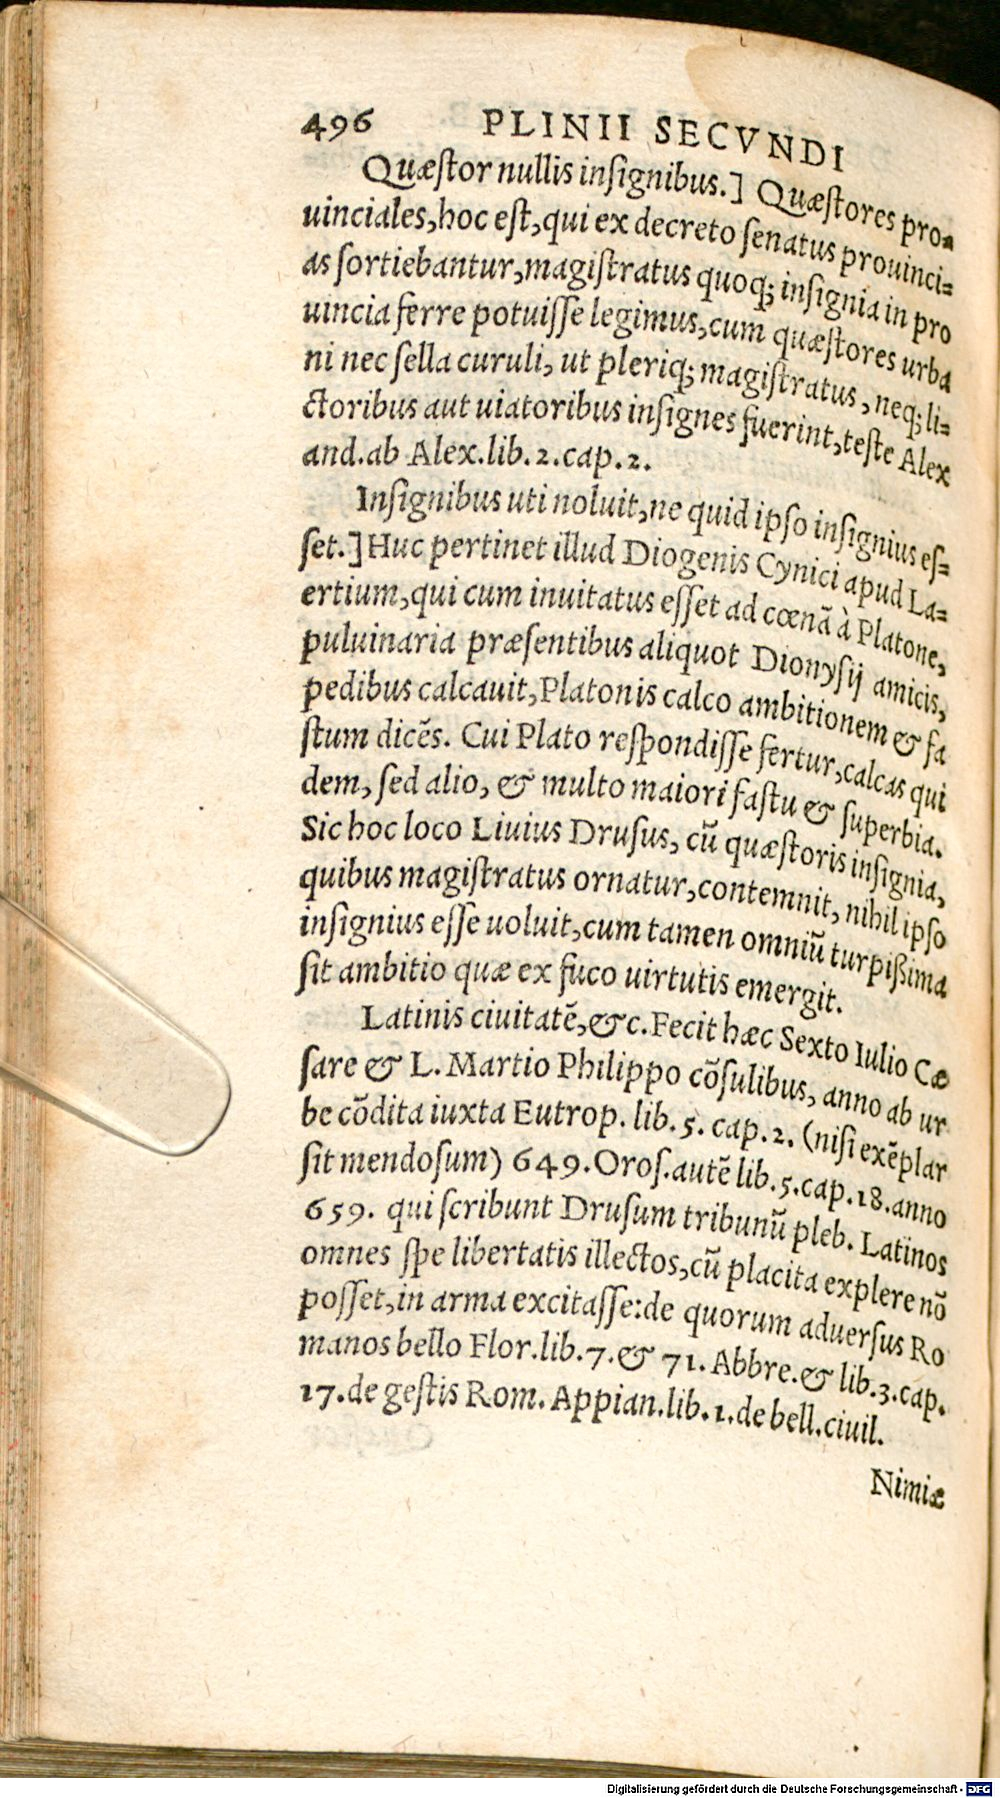 496 PLINII SECVNDI
Quæstor nullis insignibus.] Quæstores pro=
uinciales,hoc est,qui ex decreto senatus prouinci=
as sortiebantur,magistratus quoq; insignia in pro
uincia ferre potuisse legimus,cum quæstores urba
ni nec sella curuli, ut pleriq; magistratus, neq; li=
ctoribus aut uiatoribus insignes fuerint,teste Alex
and.ab Alex.lib.2.cap.2.
Insignibus uti noluit,ne quid ipso insignius es=
set.] Huc pertinet illud Diogenis Cynici apud La=
ertium,qui cum inuitatus esset ad cœnã à Platone,
puluinaria præsentibus aliquot Dionysij amicis,
pedibus calcauit,Platonis calco ambitionem & fa
stum dicẽs. Cui Plato respondisse fertur,calcas qui
dem, sed alio, & multo maiori fastu & superbia.
Sic hoc loco Liuius Drusus, cũ quæstoris insignia,
quibus magistratus ornatur,contemnit, nihil ipso
insignius esse uoluit,cum tamen omniũ turpißima
sit ambitio quæ ex fuco uirtutis emergit.
Latinis ciuitatẽ,&c. Fecit hæc Sexto Iulio Cæ
sare & L. Martio Philippo cõsulibus, anno ab ur
be cõdita iuxta Eutrop. lib.5. cap.2. (nisi exẽplar
sit mendosum) 649. Oros. autẽ lib.5.cap.18.anno
659. qui scribunt Drusum tribunũ pleb. Latinos
omnes spe libertatis illectos,cũ placita explere nõ
posset,in arma excitasse:de quorum aduersus Ro
manos bello Flor.lib.7.& 71. Abbre.& lib.3.cap.
17.de gestis Rom. Appian.lib.1.de bell.ciuil.
Nimiæ
Digitalisierung gefördert durch die Deutsche Forschungsgemeinschaft - DFG